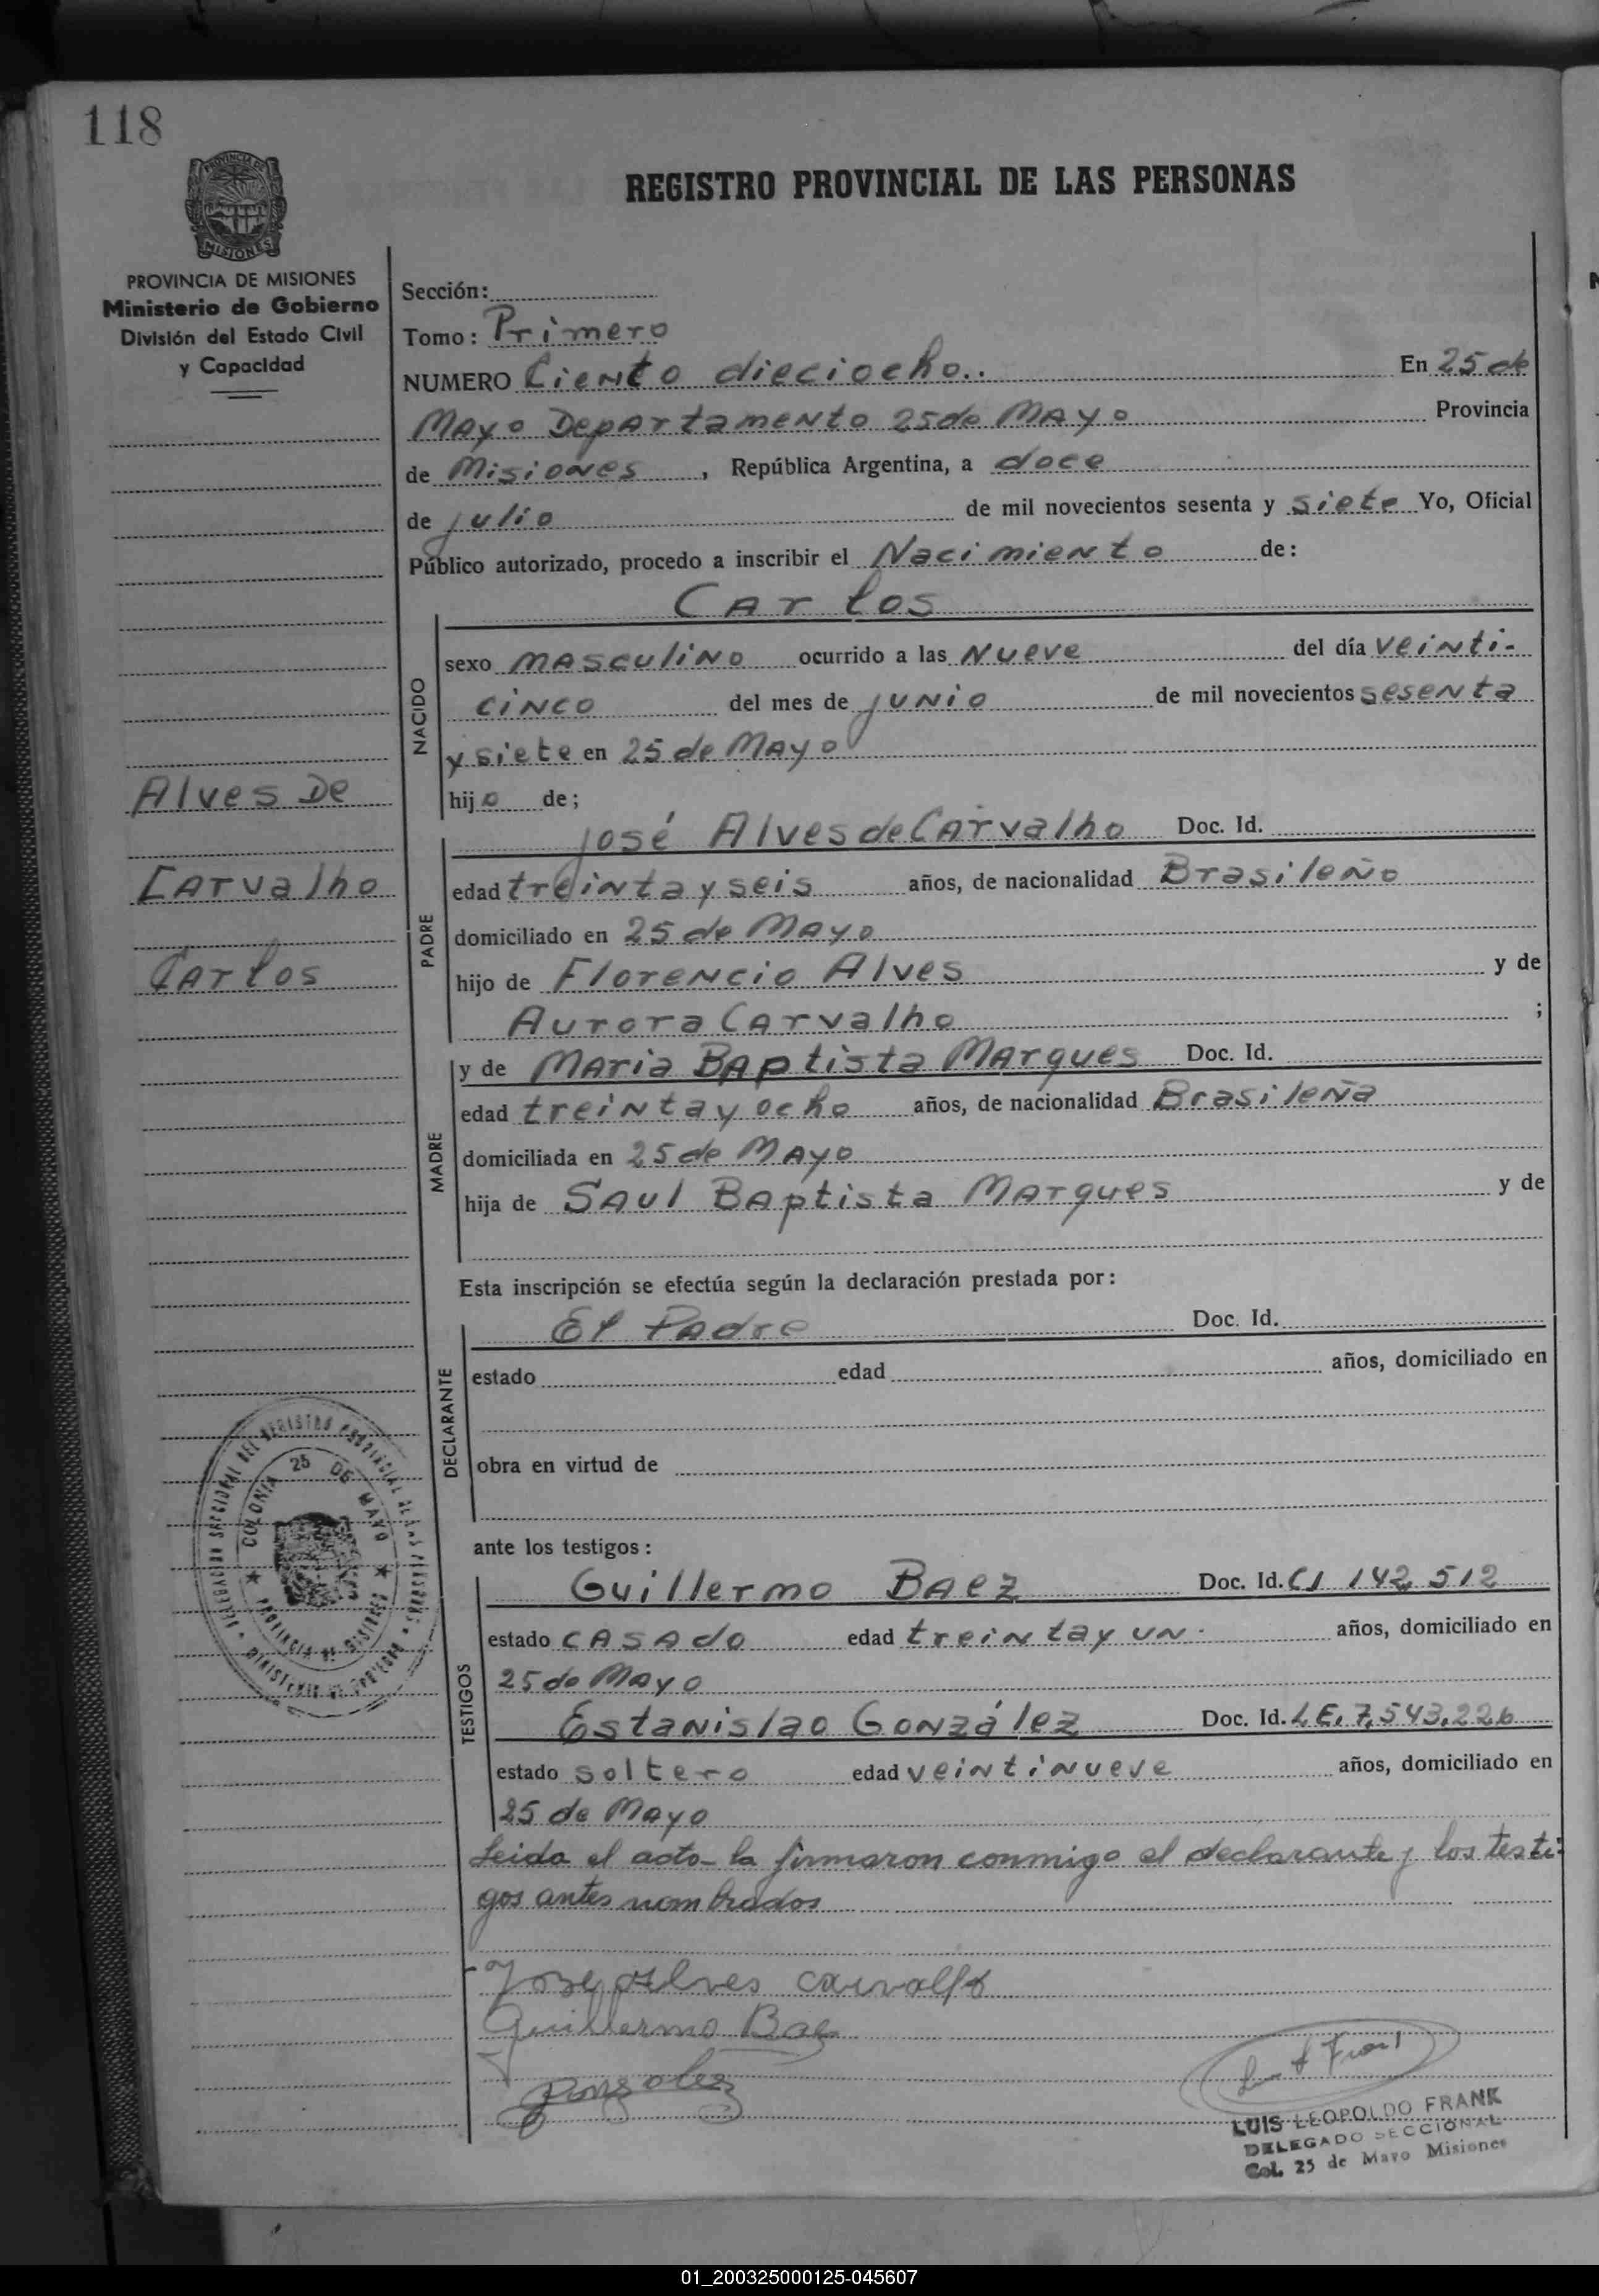 118
PROVINCIA DE
MISIONES
REGISTRO PROVINCIAL DE LAS PERSONAS
PROVINCIA DE MISIONES
Ministerio de Gobierno
División del Estado Civil
y Capacidad
Sección:
Tomo: Primero
NUMERO Ciento dieciocho.. En 25 de
Mayo Departamento 25 de Mayo Provincia
de Misiones, República Argentina, a doce
de julio de mil novecientos sesenta y siete Yo, Oficial
Público autorizado, procedo a inscribir el Nacimiento de:
Carlos
NACIDO
sexo masculino ocurrido a las Nueve del día veinti-
cinco del mes de junio de mil novecientos sesenta
y siete en 25 de Mayo
hijo de;
Alves De
Carvalho
Carlos
PADRE
José Alves de Carvalho Doc. Id.
edad treinta y seis años, de nacionalidad Brasileño
domiciliado en 25 de Mayo
hijo de Florencio Alves y de
Aurora Carvalho ;
MADRE
y de Maria Baptista Marques Doc. Id.
edad treinta y ocho años, de nacionalidad Brasileña
domiciliada en 25 de Mayo
hija de Saul Baptista Marques y de
Esta inscripción se efectúa según la declaración prestada por:
DECLARANTE
El Padre Doc. Id.
estado edad años, domiciliado en
obra en virtud de
COLONIA 25 DE MAYO
PROVINCIA DE MISIONES
ante los testigos:
TESTIGOS
Guillermo Baez Doc. Id. CI 142,512
estado casado edad treinta y un. años, domiciliado en
25 de Mayo
Estanislao González Doc. Id. LE. 7,543.226
estado soltero edad veintinueve años, domiciliado en
25 de Mayo
Leida el acta la firmaron conmigo el declarante y los testi-
gos antes nombrados
Jose Alves Carvalho
Guillermo Baez
Gonzalez
LUIS LEOPOLDO FRANK
DELEGADO SECCIONAL
Col. 25 de Mayo Misiones
01_200325000125-045607